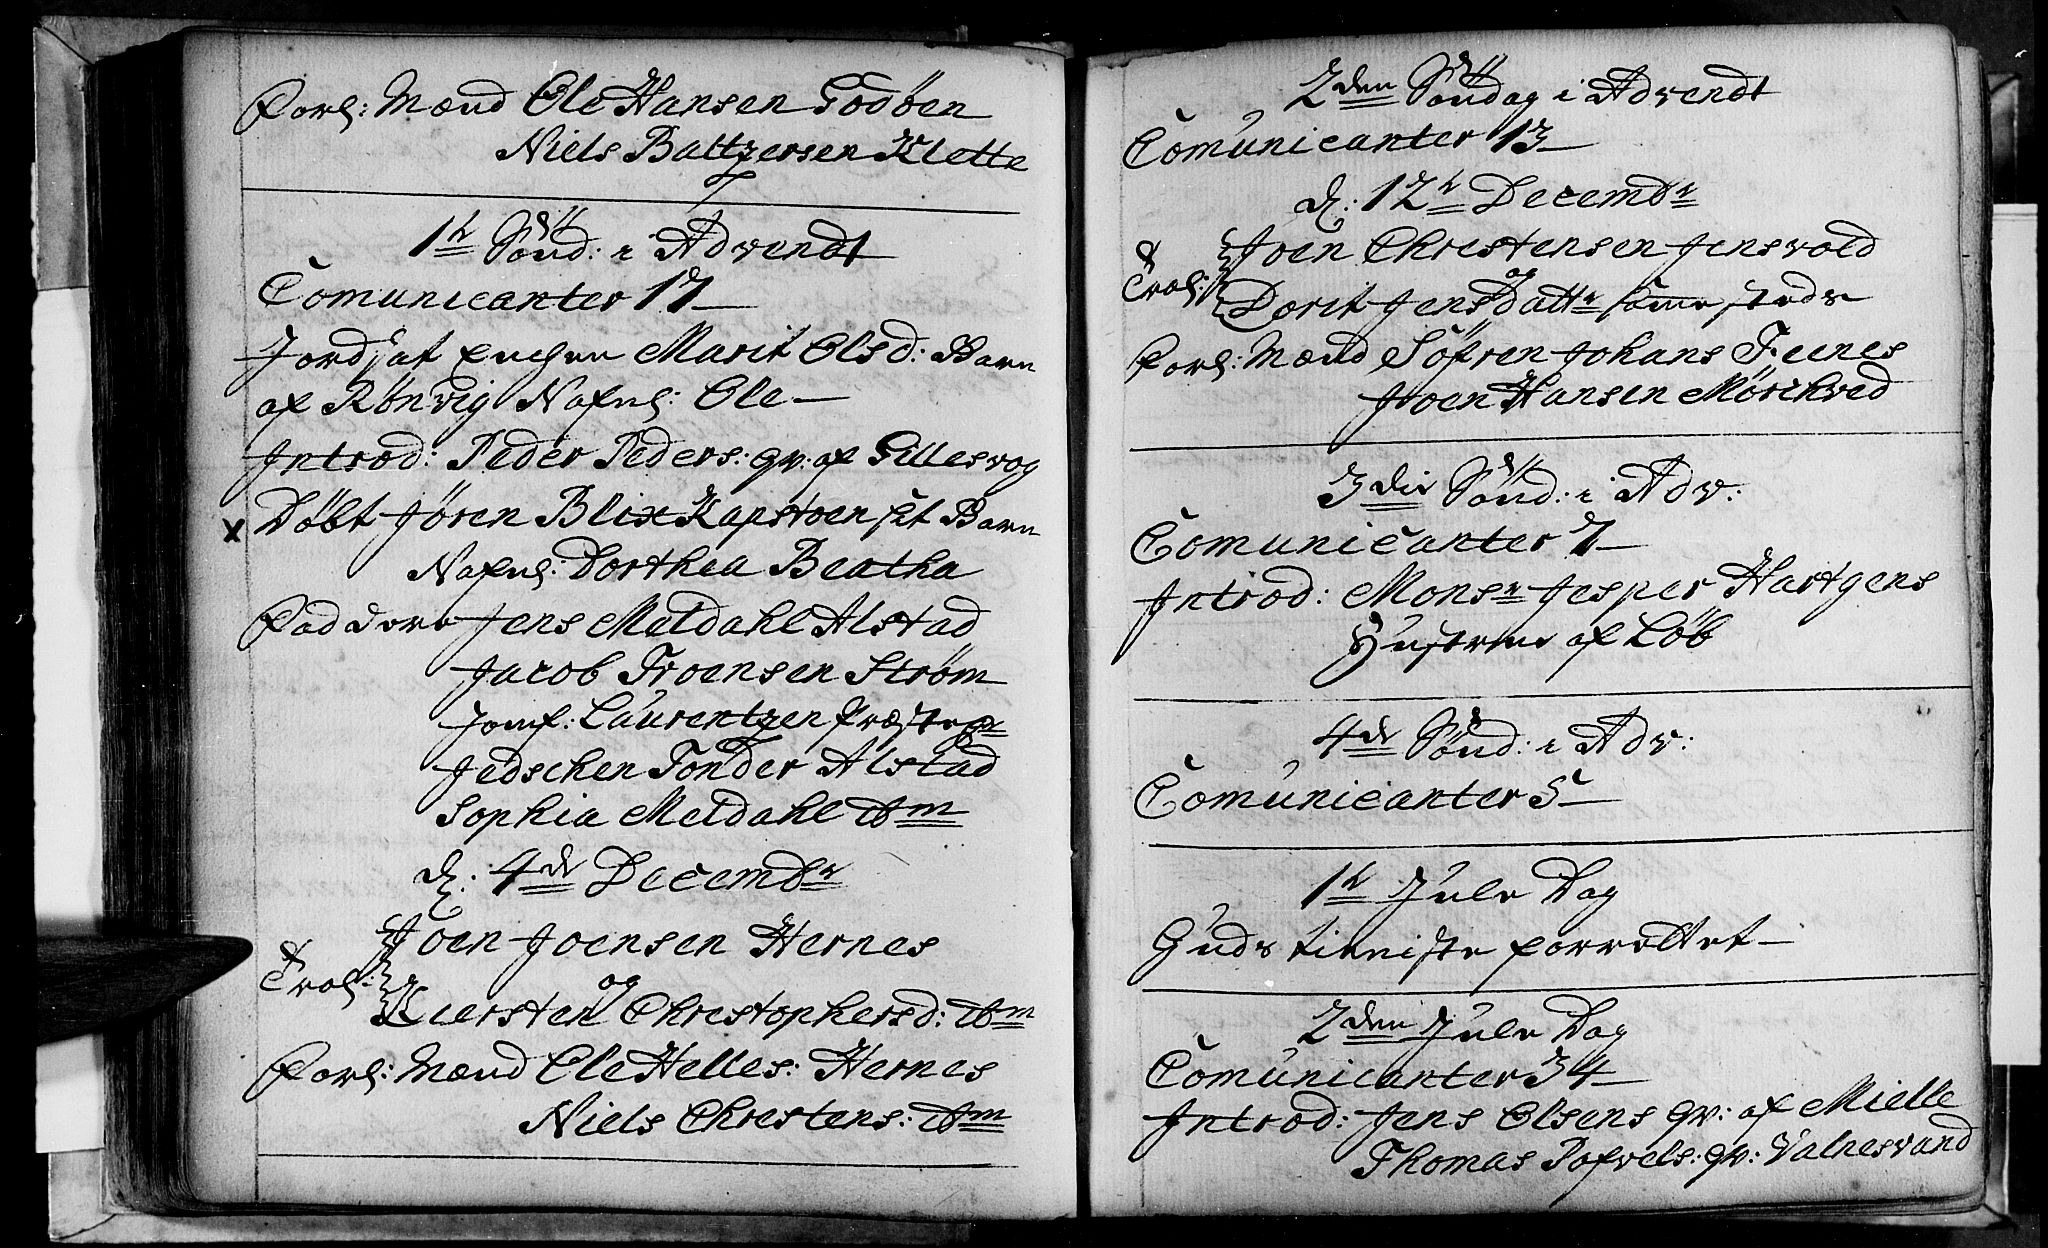 Forl: Mænd Ole Hansen Godøen
Niels Baltzersen Klette
1te Sönd: i Advendt
Comunicanter 17
Jords: at Enchen Marit Olsd: Barn
af Rønvig Nafnl: Ole
Introd: Peder Peders: qv: af Gillesvog
x Döbt Jören Blix Kapstoen sit Barn
Nafnl: Dorthea Beatha
Faddere Jens Meldahl Alstad
Jacob Troensen Strøm
Jomf: Laurentzen Præste
Jedschen Tonder Alstad
Sophia Meldahl ibm
d: 4de Decembr
Joen Joensen Hernes
og
Trol:
Kiersten Chrestophersd: ibm
Forl: Mænd Ole Helles: Hernes
Niels Chrestens: ibm
2den Söndag i Advendt
Comunicanter 13
d: 12te Decembr
Joen Chrestensen Jensvold
og
Trol:
Dorit Jensdattr samesteds
Forl: Mænd Söfren Johans Feenes
Joen Hansen Mørchved
3die Sönd: i Adv:
Comunicanter 7
Introd: Monsr Jesper Hartgens
Hustrue af Löb
4de Sönd: i Adv:
Comunicanter 5
1te Jule Dag
Guds tienniste forrettet
2den Jule Dag
Comunicanter 34
Introd: Jens Olsens qv: af Mielle
Thomas Pofvels: qv: Valnesvand